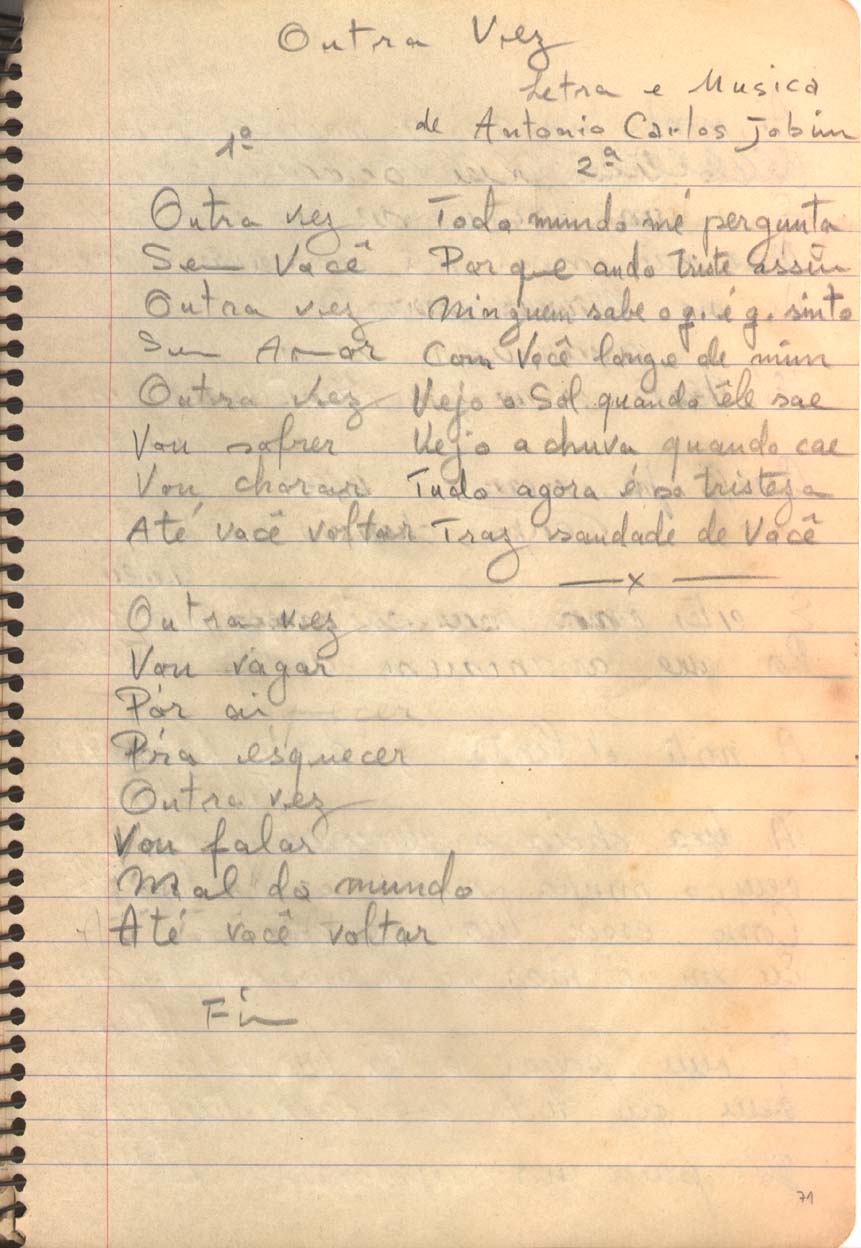 Outra Vez
Letra e Musica
de Antonio Carlos Jobim
1ª
Outra vez
Sem Você
Outra vez
Sem Amor
Outra vez
Vou sofrer
Vou chorar
Até você voltar
2ª
Todo mundo me pergunta
Por que ando triste assim
Ninguem sabe o q. é q. sinto
Com Você longe de mim
Vejo o Sol quando êle sae
Vejo a chuva quando cae
Tudo agora é so tristeza
Traz saudade de Você
— x —
Outra vez
Vou vagar
Por ai
Pra esquecer
Outra vez
Vou falar
Mal do mundo
Até você voltar
Fim
71